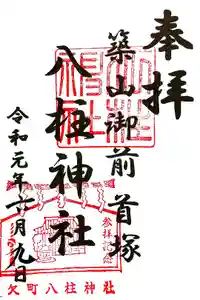 奉拝
築山御前首塚
八柱神社
令和元年六月九日
参拝記念
欠町八柱神社